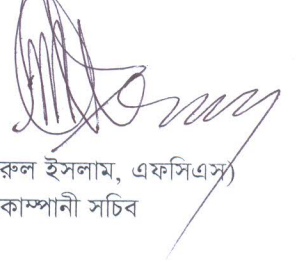 রুল ইসলাম, এফসিএস)
কাম্পানী সচিব